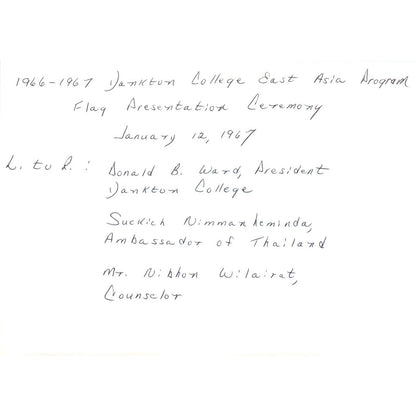 1966-1967 Yankton College East Asia Program
Flag Presentation Ceremony
January 12, 1967
L. to R.: Donald B. Ward, President
Yankton College
Suckich Nimmanheminda,
Ambassador of Thailand
Mr. Nibhon Wilairat,
Counselor